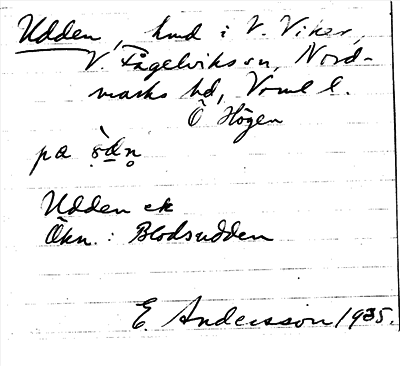 Udden, hmd i V. Viker,
V. Fågelviks sn, Nord-
marks hd, Vrml l.
Ö Högen
på
Udden ek
Ökn.: Blodsudden
E. Andersson 1935.